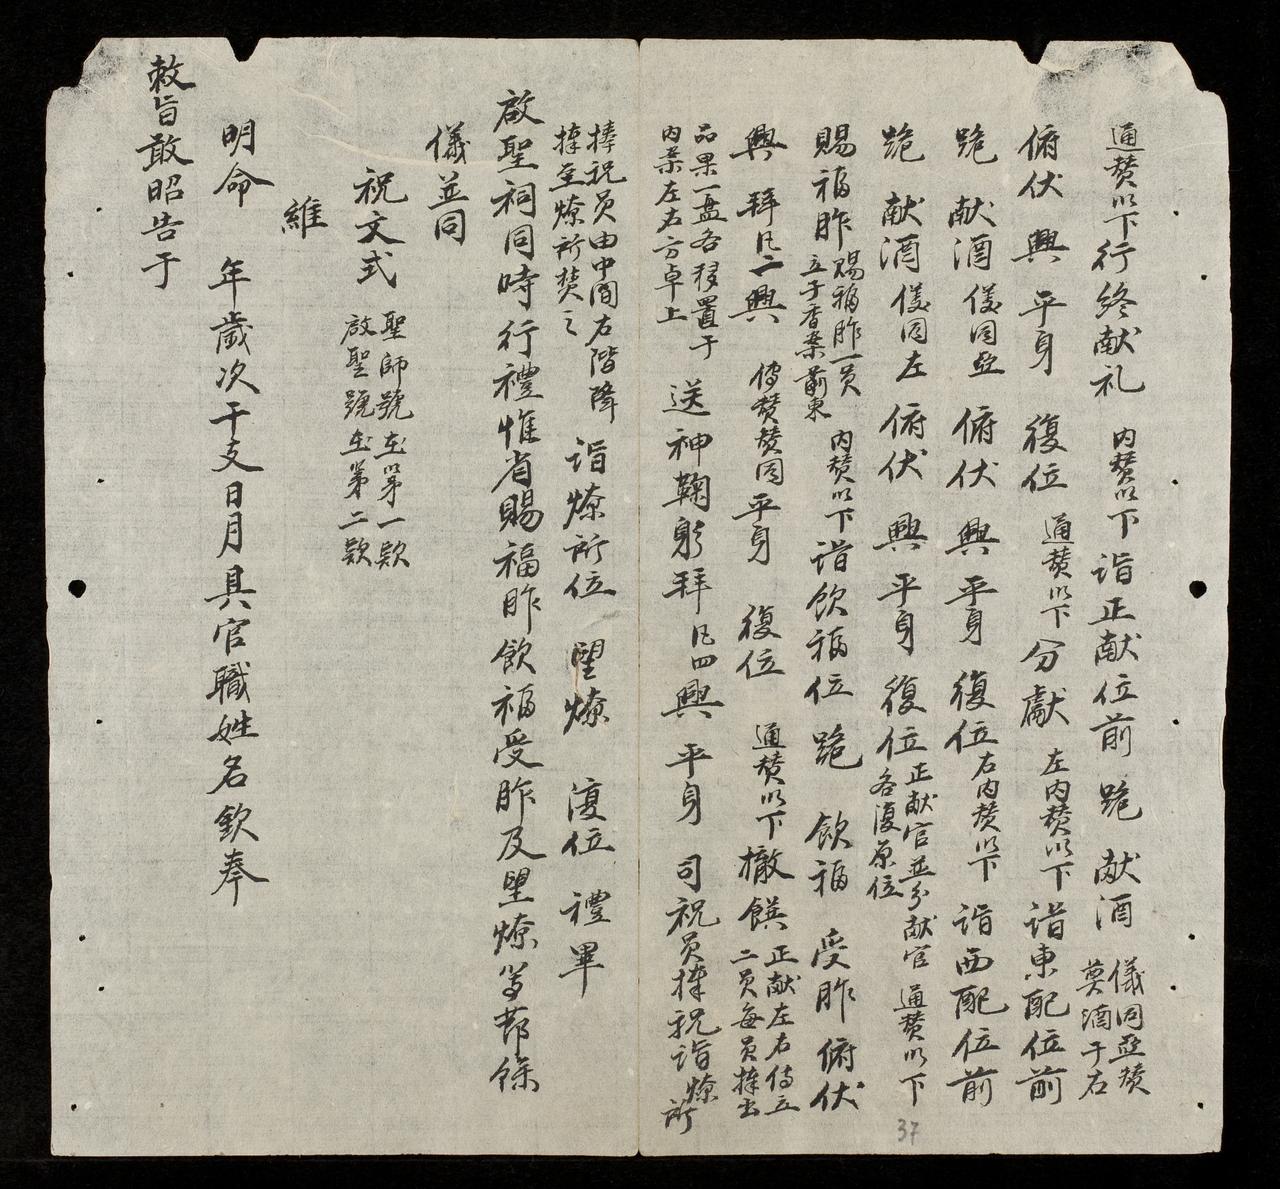 通贊以下行終献礼 内贊以下 詣正献位前 跪 献酒 儀同亞贊奠酒于右
俯伏 興 平身 復位 通贊以下 分獻 左内贊以下 詣東配位前
跪 献酒 儀同亞 俯伏 興 平身 復位 右内贊以下 詣西配位前
跪 献酒 儀同左 俯伏 興 平身 復位 正献官並分献官各復原位 通贊以下
賜福胙 賜福胙一員立于香案前東 内贊以下 詣飲福位 跪 飲福 受胙 俯伏
興 拜 凡二 興 傳贊贊同 平身 復位 通贊以下 撤饌 正献左右傳立二員每員捧出
品果一盘各移置于内案左右方卓上 送神鞠躬拜 凡四 興 平身 司祝員捧祝詣燎所
捧祝員由中間右階降捧至燎所焚之 詣燎所位 望燎 復位 禮畢
啟聖祠同時行禮惟省賜福胙飲福受胙及望燎等節餘
儀並同
祝文式 聖師號在第一款啟聖號在第二款
維
明命 年歲次干支日月具官職姓名欽奉
敕旨敢昭告于
37